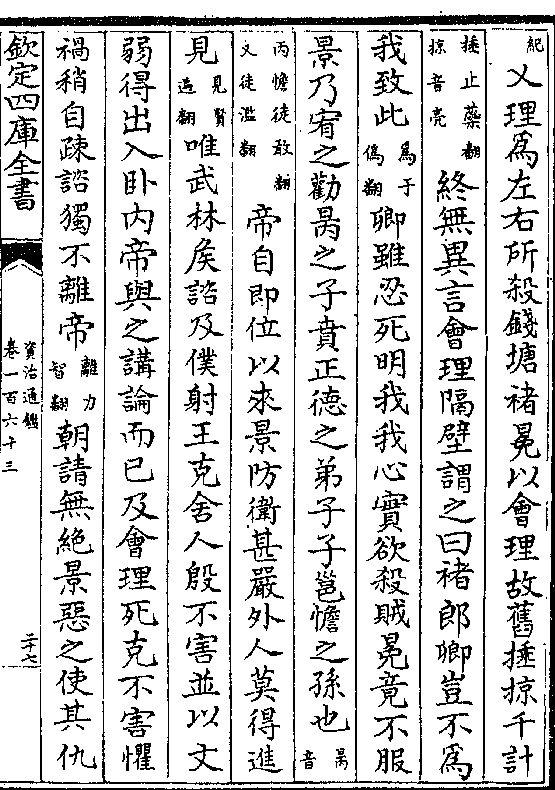 紀
乂理爲左右所殺錢塘褚冕以會理故舊捶掠千計
捶止蘂翻
掠音亮
終無異言會理隔壁謂之曰褚郎卿豈不爲
我致此
爲于
僞翻
卿雖忍死明我我心實欲殺賊冕竟不服
景乃宥之勸昺之子賁正德之弟子子邕憺之孫也
昺
音
丙憺徒敢翻
又徒濫翻
帝自即位以來景防衛甚嚴外人莫得進
見
見賢
遍翻
唯武林侯諮及僕射王克舍人殷不害並以文
弱得出入卧内帝與之講論而已及會理死克不害懼
禍稍自疎諮獨不離帝
離力
智翻
朝請無絶景惡之使其仇
欽定四庫全書
資治通鑑
卷一百六十三
二十七